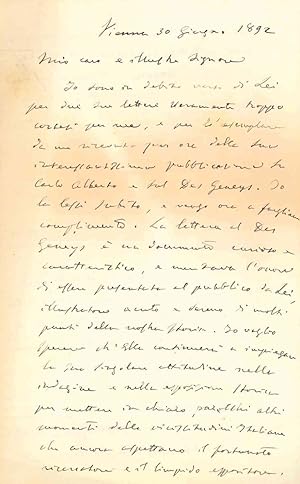 Vienna 30 Giugno 1892
Mio caro e illustre Signore
Io sono in debito verso di Lei
per due sue lettere veramente troppo
cortesi per me, e per l'esemplare
da me ricevuto pur ora della sua
interessantissima pubblicazione su
Carlo Alberto e sul Des Geneys. Io
la lessi subito, e vengo ora a fargliene
complimento. La lettera al Des
Geneys è un documento curioso e
caratteristico, e meritava l'onore
di essere presentata al pubblico da Lei
illustratore acuto e sereno di molti
punti della nostra storia. Io voglio
sperare ch'Ella continuerà a impiegare
la sua singolare attitudine nelle
indagini e nella esposizione storica
per mettere in chiaro parecchi altri
momenti delle vicissitudini Italiane
che ancora aspettano il fortunato
ricercatore e il limpido espositore.